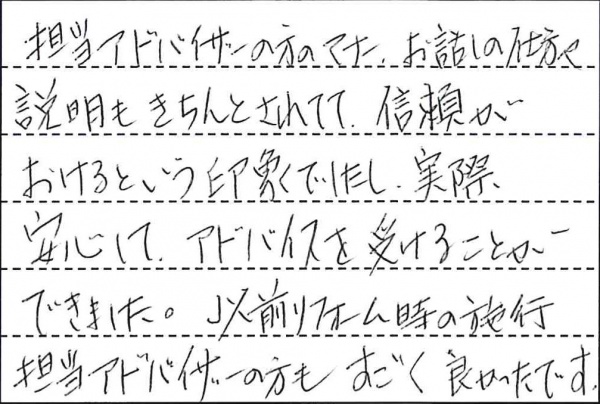 担当アドバイザーの方のマナー、お話しの仕方や
説明もきちんとされてて、信頼が
おけるという印象でしたし、実際、
安心して、アドバイスを受けることが
できました。以前リフォーム時の施行
担当アドバイザーの方もすごく良かったです。